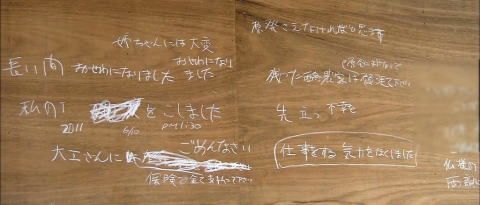 姉ちゃんには大変
おせわになり
長い間 おせわになりました ました
私の をこしました
2011 6/10 pm 1:30
ごめんなさい
大工さんに
保険で全て支払って下さい
原発さえなければと思ます
残った酪農家は原発にまけないで頑張て下さい
先立つ不幸を
仕事をする気力をなくしました
仏様の